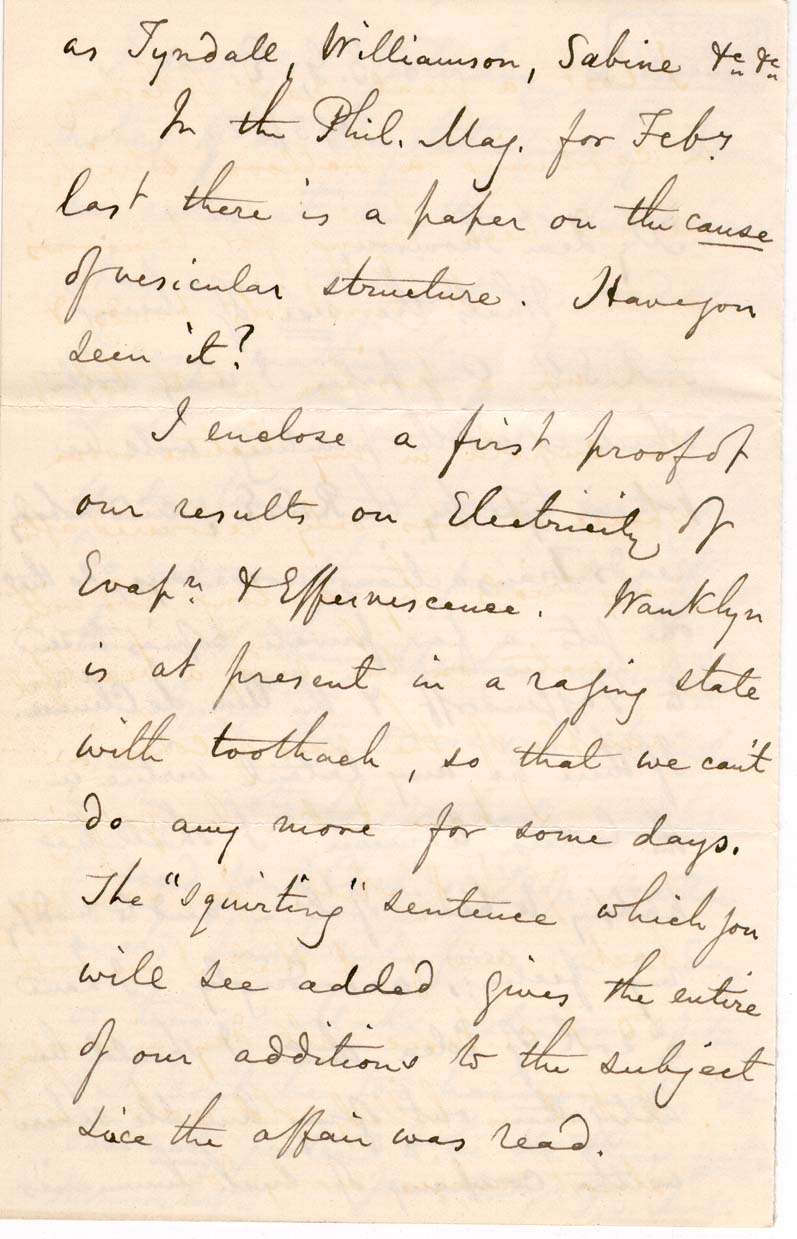 as Tyndale, Williamson, Sabine &c &c
In the Phil. Mag. for Feby
last there is a paper on the cause
of vesicular structure. Have you
seen it?
I enclose a first proof of
our results on Electricity of
Evapn. & Effervescence. Wanklyn
is at present in a raging state
with toothach, so that we can't
do any more for some days.
The "squirting" sentence which you
will see added gives the entire
of our additions to the subject
since the affair was read.